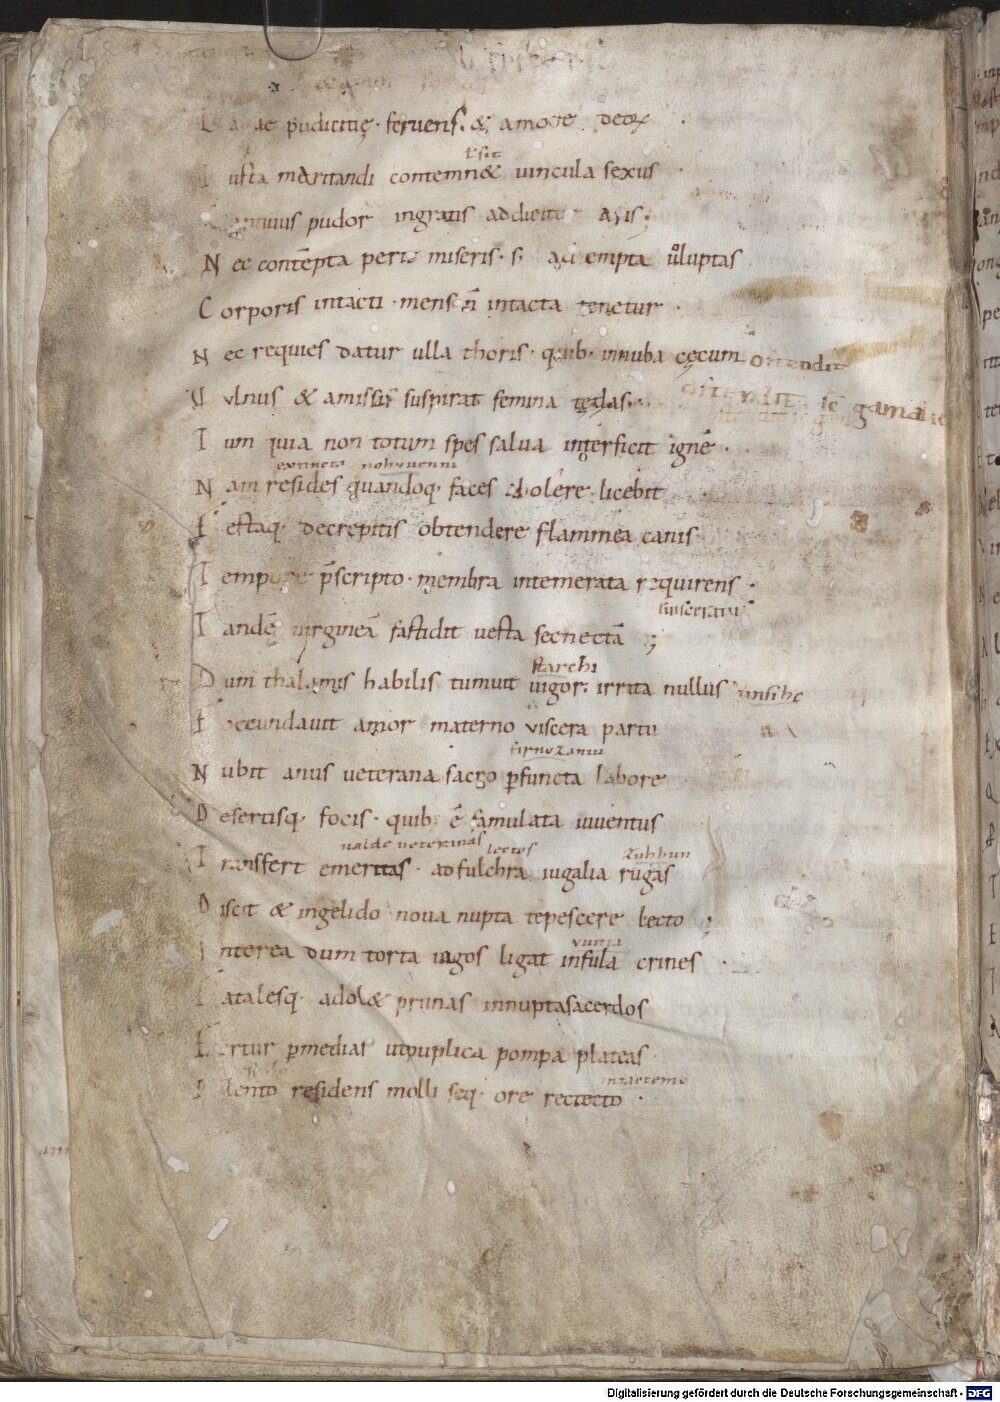 ae pudicitię · feruens · & amore deoꝝ
ł sit
I usta maritandi contemn& uincula sexus
pudor ingratis addicitur Aris ·
N ec contēpta perit miseris · s; adempta uoluptas
C orporis intacti · mens n̄ intacta tenetur ·
N ec requies datur ulla thoris · quib · innuba cęcum ostendit
V ulnus & amissas suspirat femina tędas · ostendit se gama
T um quia non totum spes salua interficit ignē ·
extincta
N am resides quandoq · faces adolere · licebit
F estaq · decrepitis obtendere flammea canis
T empore p̄scripto · membra intemerata requirens ·
T andē uirgineā fastidit uesta senectā ;
starchi
D um thalamis habilis tumuit uigor : irrita nullus
F oecundauit amor materno viscera partu
N ubit anus ueterana sacro ꝑfuncta labore
D esertisq · focis · quib · ē famulata iuuentus
ualde ueteranas lectos
T ransfert emeritas · ad fulchra iugalia rugas
D iscit & ingelido noua nupta tepescere lecto ;
I nterea dum torta uagos ligat infula crines ·
F atalesq · adol& prunas innupta sacerdos
F ertur ꝑ medias ut puplica pompa plateas ·
P ilento residens molli seq · ore retecto ·
Digitalisierung gefördert durch die Deutsche Forschungsgemeinschaft - DFG